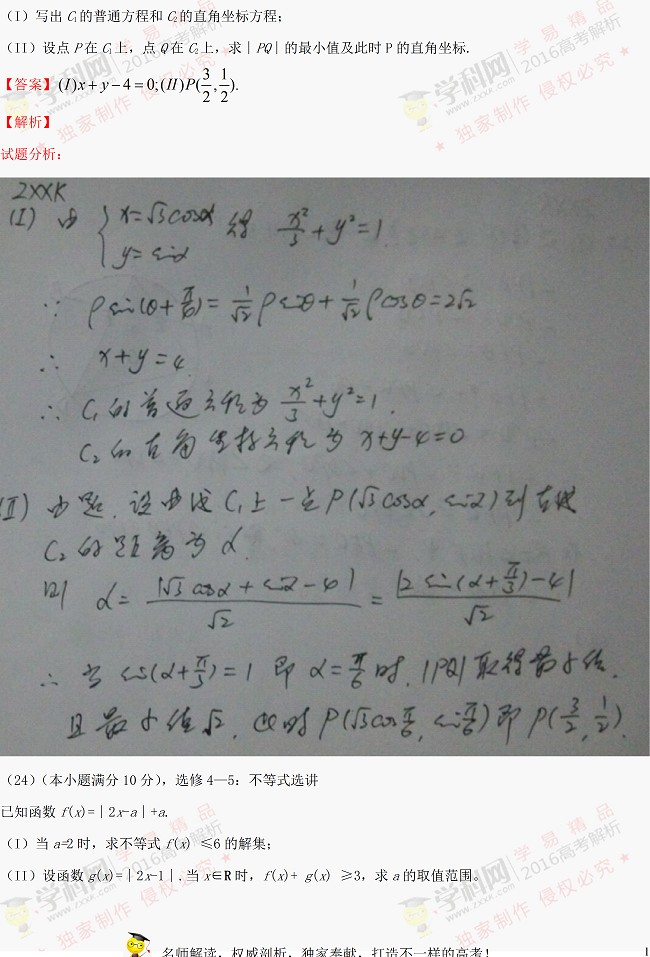 (I)写出C₁的普通方程和C₂的直角坐标方程；
(II)设点P在C₁上，点Q在C₂上，求|PQ|的最小值及此时P的直角坐标.
【答案】(I)x+y−4=0;(II)P(3/2,1/2).
【解析】
试题分析：
ZXXK
(I) 由 { x=√3cosα y=sinα 得 x²/3+y²=1
∵ ρsin(θ+π/4)=1/√2 ρsinθ+1/√2 ρcosθ=2√2
∴ x+y=4
∴ C₁的普通方程为 x²/3+y²=1.
C₂的直角坐标方程为 x+y-4=0
(II) 由题，设曲线C₁上一点P(√3cosα, sinα)到直线
C₂的距离为d.
则 d=|√3cosα+sinα-4|/√2=|2sin(α+π/3)-4|/√2
∴ 当sin(α+π/3)=1 即 α=π/6时，|PQ|取得最小值.
且最小值√2，此时P(√3cosπ/6, sinπ/6)即P(3/2,1/2).
(24)(本小题满分10分)，选修4—5：不等式选讲
已知函数f(x)=|2x-a|+a.
(I)当a=2时，求不等式f(x) ≤6的解集；
(II)设函数g(x)=|2x-1|.当x∈R时，f(x)+ g(x) ≥3，求a的取值范围。
名师解读，权威剖析，独家奉献，打造不一样的高考！ 1
学科网 学易精品
www.zxxk.com 2016高考解析
独家制作 侵权必究